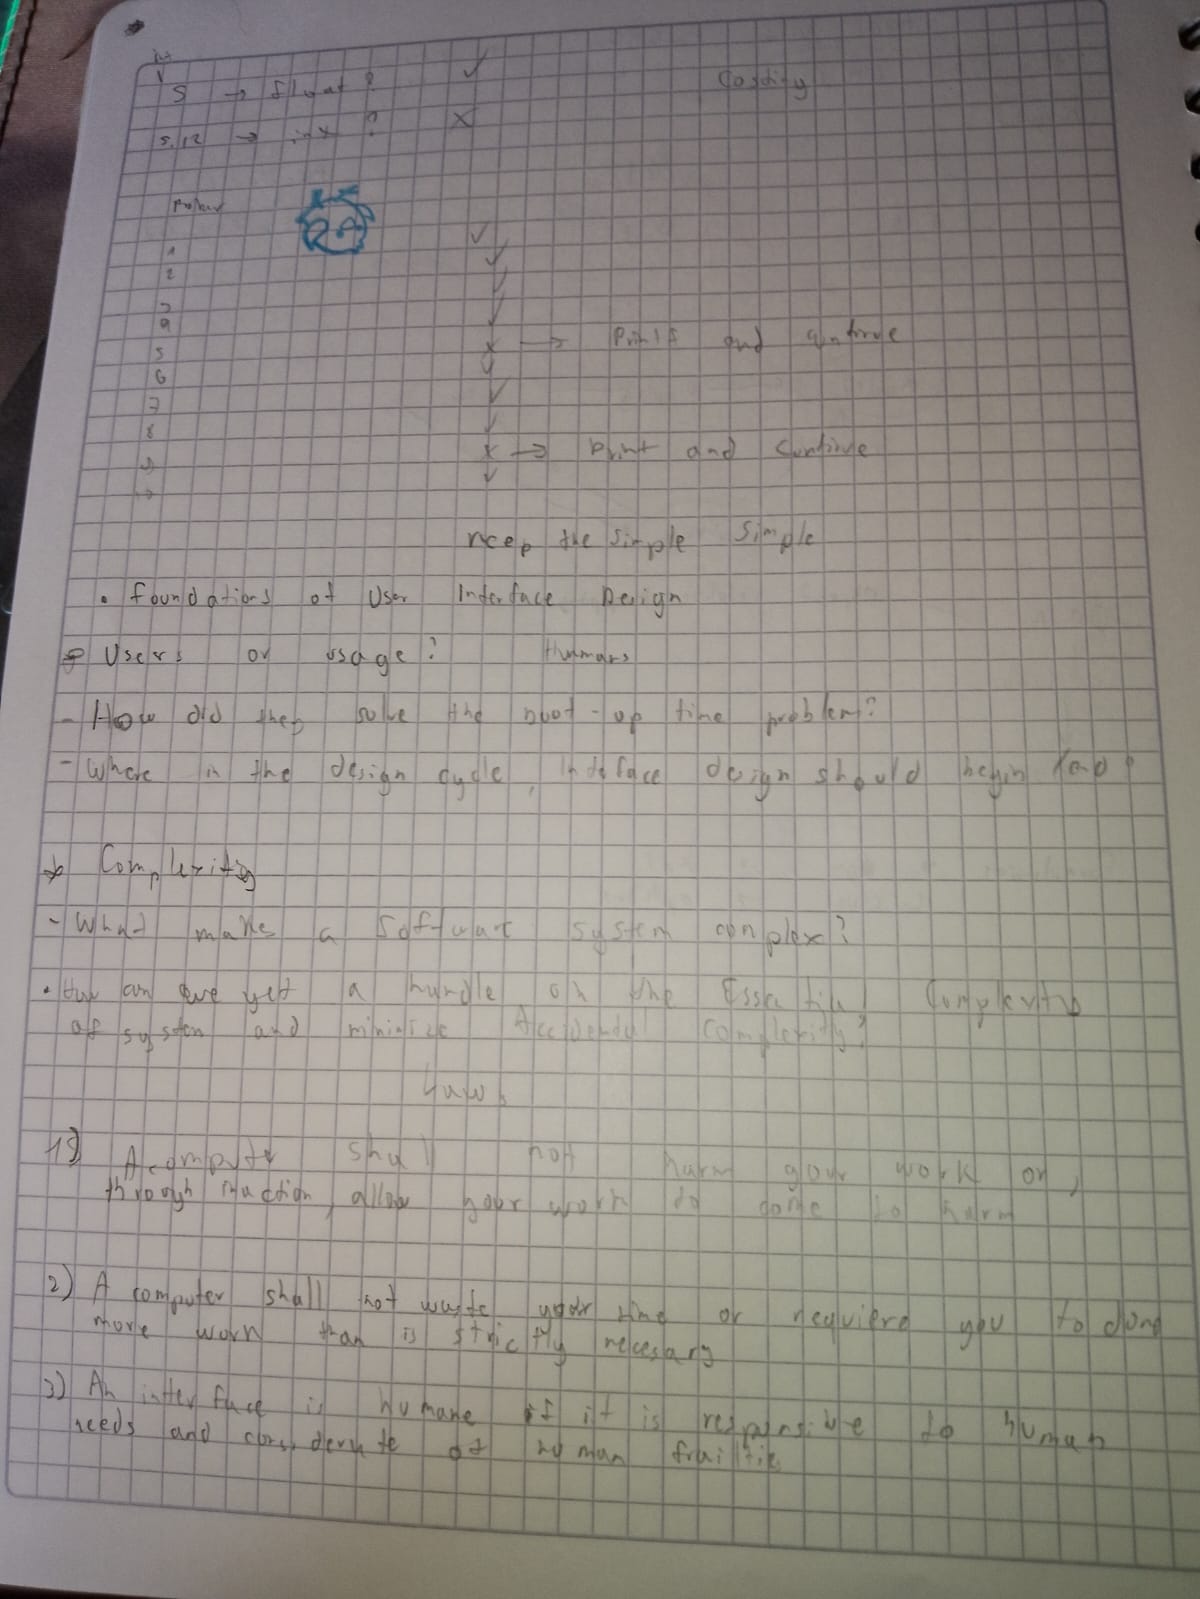 int
5 → float ? ✓
5.12 → int ? X
1
2
3
4
5 x → Printf and continue
6
7
8
9 x → print and continue
10
Keep the simple simple
• Foundations of User Interface Design
Users or usage? Humans
- How did they solve the boot-up time problem?
- Where in the design cycle, interface design should begin
Complexity
- What makes a software system complex?
• How can we get a handle on the Essential Complexity
of system and minimize Accidental complexity?
Laws
1) A computer shall not harm your work or,
through inaction, allow your work to come to harm
2) A computer shall not waste your time or requiere you to dond
more work than is strictly necesary
3) An interface is humane if it is responsive to human
needs and considerate of human frailtie